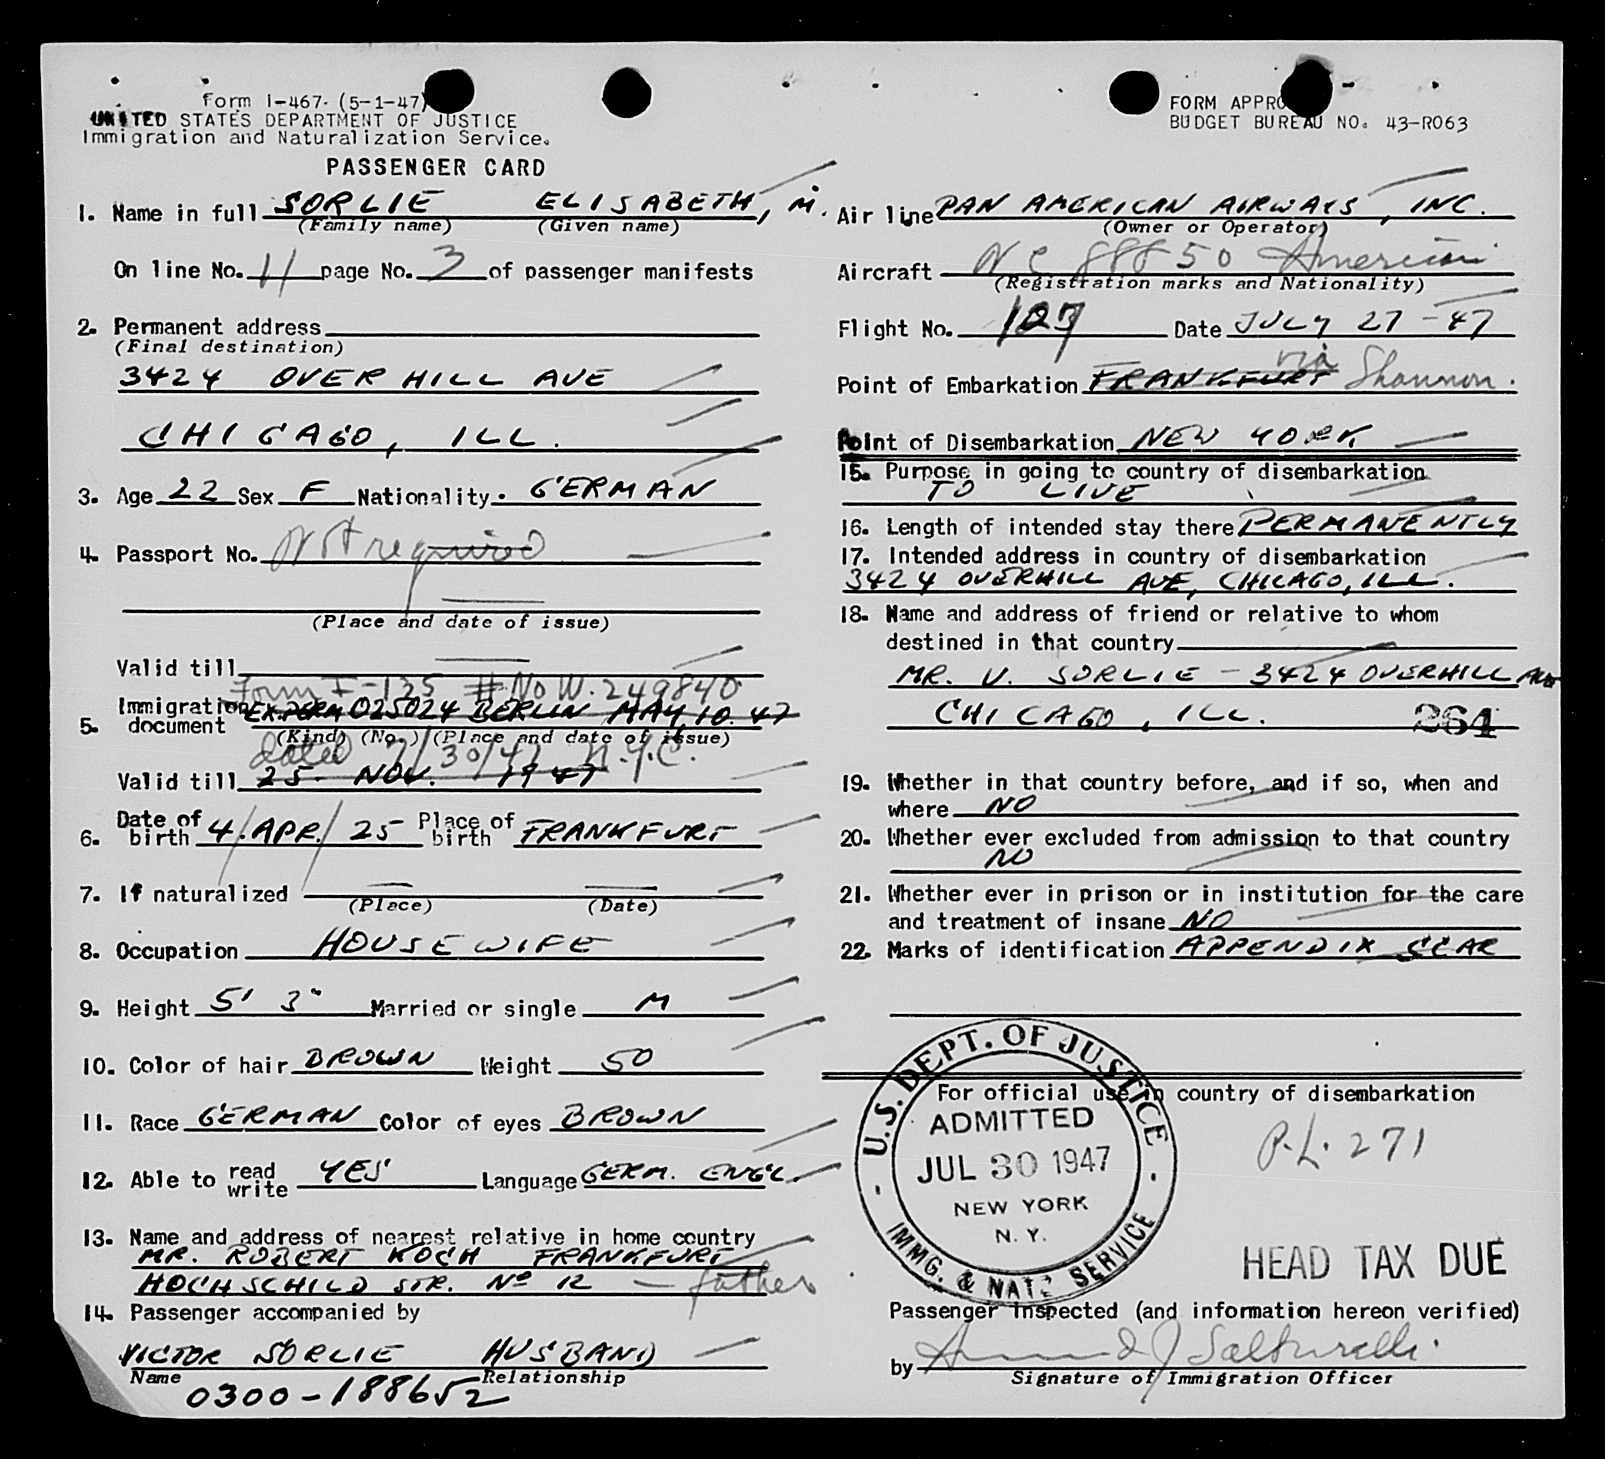 Form I-467. (5-1-47)
UNITED STATES DEPARTMENT OF JUSTICE
Immigration and Naturalization Service.
PASSENGER CARD
1. Name in full SORLIE ELISABETH, M.
(Family name) (Given name)
On line No. 11 page No. 3 of passenger manifests
2. Permanent address
(Final destination)
3424 OVERHILL AVE
CHICAGO, ILL.
3. Age 22 Sex F Nationality. GERMAN
4. Passport No. Not required
(Place and date of issue)
Valid till
Form I-135 # No W. 249840
5. Immigration document EX.PERM 025024 BERLIN MAY 10 47
(Kind) (No.) (Place and date of issue)
dated 7/30/47 N.Y.C.
Valid till 25. NOV. 1947
6. Date of birth 4. APR. 25 Place of birth FRANKFURT
7. If naturalized
(Place) (Date)
8. Occupation HOUSEWIFE
9. Height 5' 3" Married or single M
10. Color of hair BROWN Weight 50
11. Race GERMAN Color of eyes BROWN
12. Able to read write YES Language GERM. ENGL.
13. Name and address of nearest relative in home country
MR. ROBERT KOCH FRANKFURT
HOCHSCHILD STR. No 12 — father
14. Passenger accompanied by
VICTOR SORLIE HUSBAND
Name Relationship
0300-188652
FORM APPRO
BUDGET BUREAU NO. 43-R063
Air line PAN AMERICAN AIRWAYS, INC.
(Owner or Operator)
Aircraft NC 88850 American
(Registration marks and Nationality)
Flight No. 127 Date JULY 27-47
Point of Embarkation FRANKFURT via Shannon.
Point of Disembarkation NEW YORK
15. Purpose in going to country of disembarkation
TO LIVE
16. Length of intended stay there PERMANENTLY
17. Intended address in country of disembarkation
3424 OVERHILL AVE, CHICAGO, ILL.
18. Name and address of friend or relative to whom
destined in that country
MR. V. SORLIE - 3424 OVERHILL AVE
CHICAGO, ILL. 264
19. Whether in that country before, and if so, when and
where NO
20. Whether ever excluded from admission to that country
NO
21. Whether ever in prison or in institution for the care
and treatment of insane NO
22. Marks of identification APPENDIX SCAR
For official use in country of disembarkation
U.S. DEPT. OF JUSTICE
ADMITTED
JUL 30 1947
NEW YORK
N. Y.
IMMG. & NATZ SERVICE
P.L. 271
HEAD TAX DUE
Passenger inspected (and information hereon verified)
by
Signature of Immigration Officer